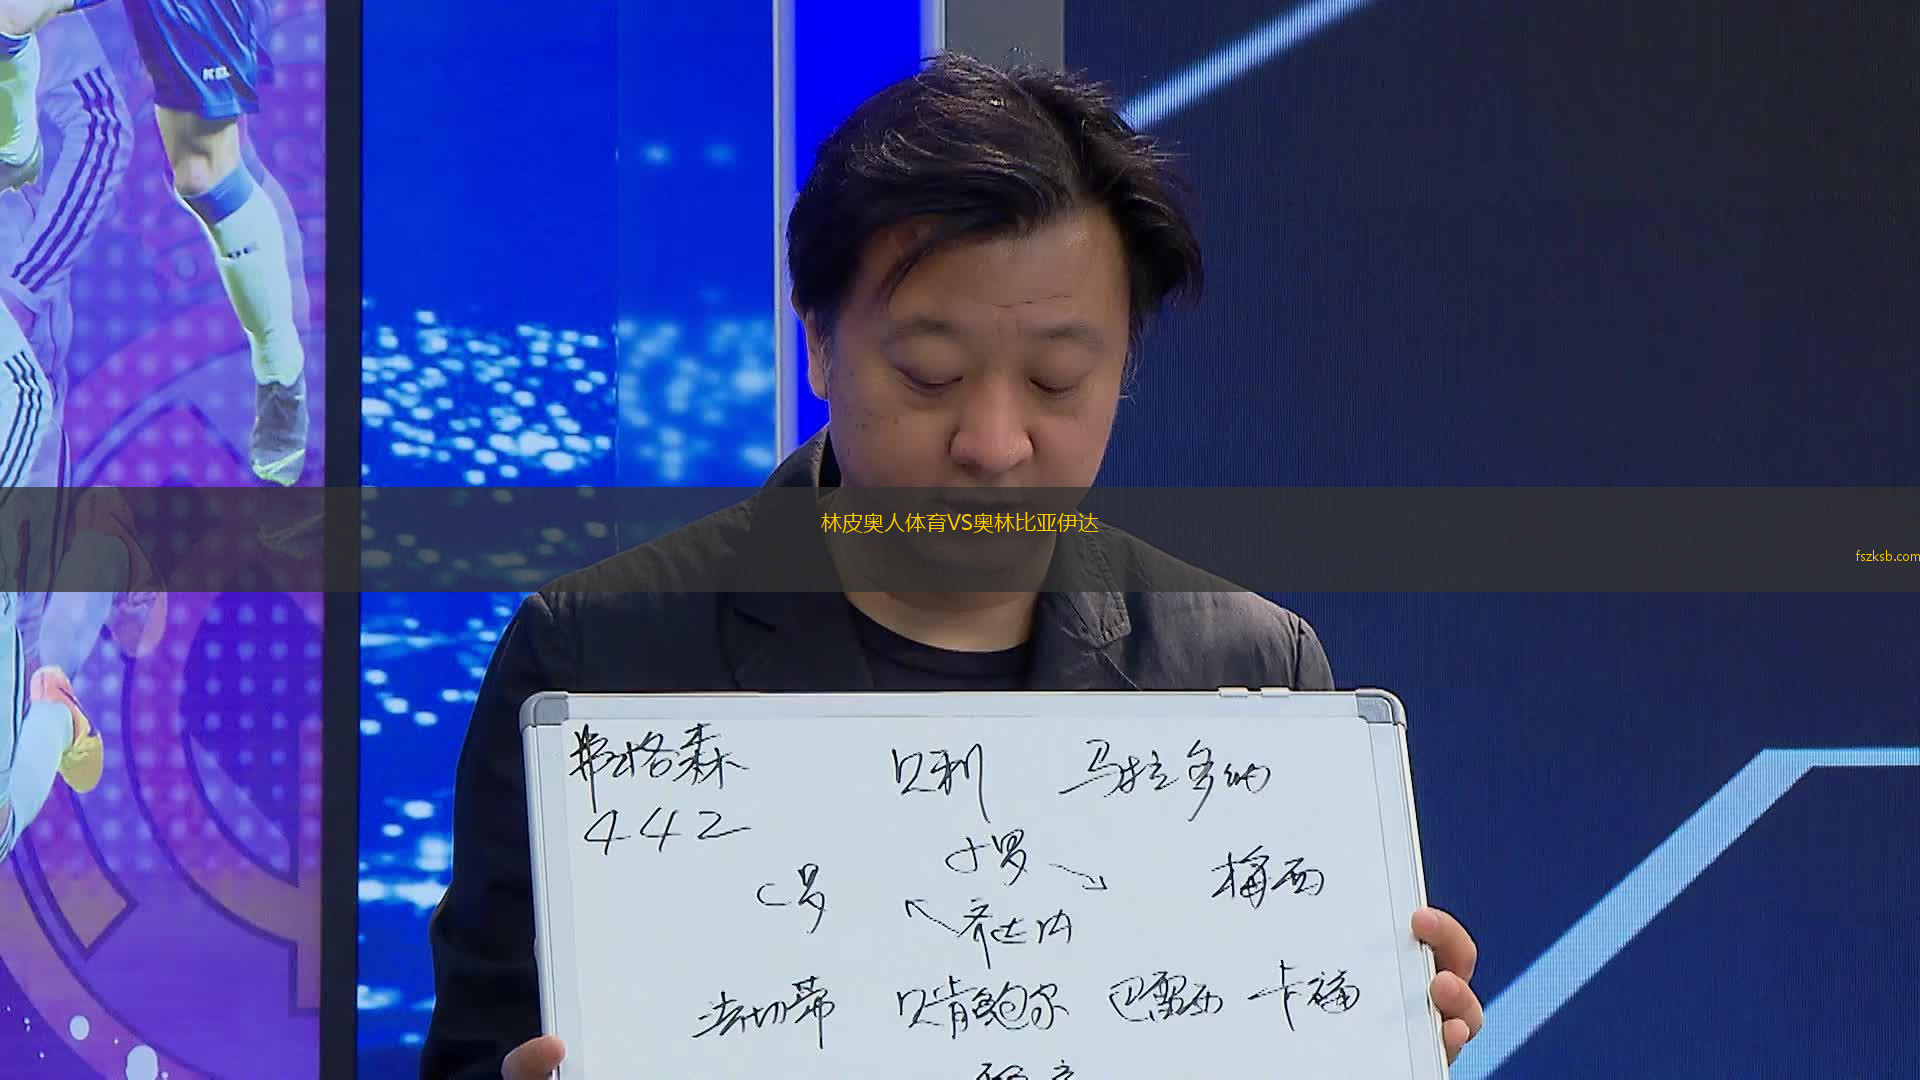 KEL
林皮奥人体育VS奥林比亚伊达
fszksb.com
弗格森 贝利 马拉多纳
442
小罗
C罗 梅西
齐达内
法切蒂 贝肯鲍尔 巴雷西 卡福